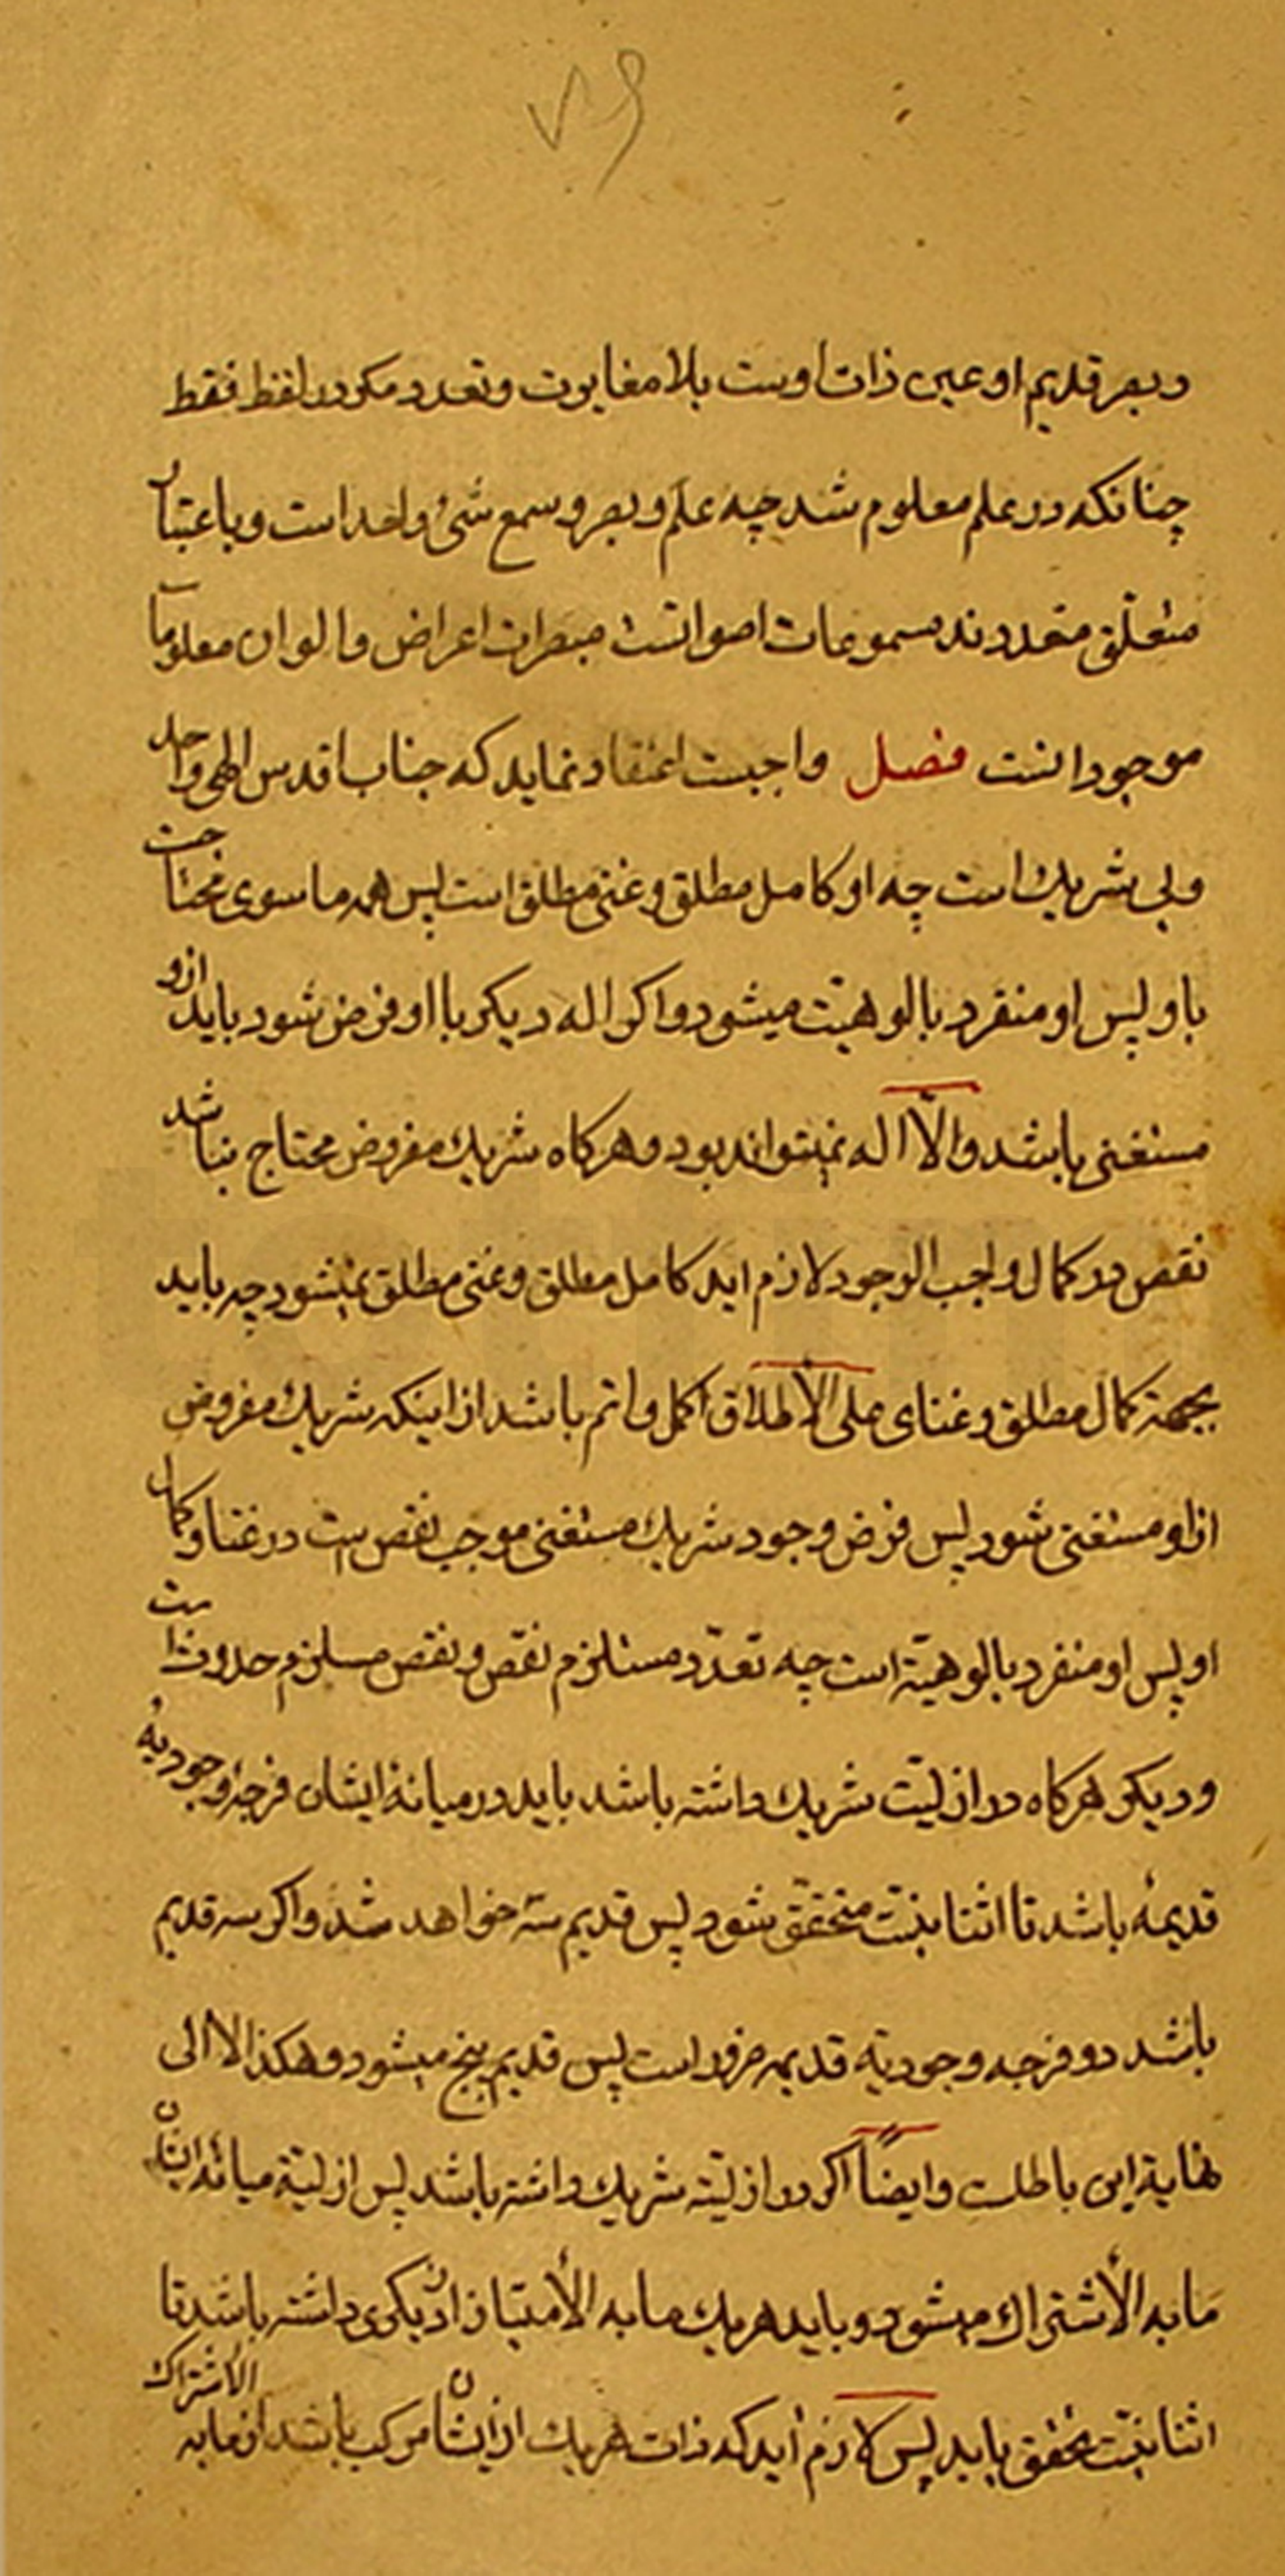 ۷۹
و بصر قدیم او عین ذات اوست بلا مغایرت و تعدد مکر در لفظ فقط
چنانکه در علم معلوم شد چه علم و بصر و سمع شیء واحد است و باعتبار
متعلّق متعددند مسموعات اصواتست مبصرات اعراض و الوان معلومات
موجوداتست فصل واجبست اعتقاد نماید که جناب اقدس الهی واحد
و بی شریك است چه او کامل مطلق و غنی مطلق است پس همه ما سوی محتاجت
باو پس او منفرد بالوهیّت میشود و اکر اله دیکر با او فرض شود باید ازو
مستغنی باشد و الّا اله نمیتواند بود و هرکاه شریك مفروض محتاج نباشد
نقص در کمال واجب الوجود لازم اید کامل مطلق و غنی مطلق نمیشود چه باید
بجهة کمال مطلق و غنای علی الأطلاق اکمل و اتم باشد از اینکه شریك مفروض
از او مستغنی شود پس فرض وجود شریك مستغنی موجب نقص ست در غنا و کمال
او پس او منفرد بالوهیّة است چه تعدّد مستلزم نقص و نقص مسلزم حدوث است
و دیکر هرکاه در ازلیّت شریك داشته باشد باید در میانهٔ ایشان فرجهٔ وجودیهٔ
قدیمهٔ باشد تا اثنا ینیّت متحقّق شود پس قدیم سه خواهد شد و اکر سه قدیم
باشد دو فرجه وجودیّه قدیمه ضرور است پس قدیم پنج میشود و هکذا الا الی
نهایة این باطلست و ایضاً اکر در ازلیّة شریك داشته باشد پس ازلیّة میانهٔ ایشان
ما به الأشتراك میشود و باید هریك ما به الأمتیاز از دیکری داشته باشد تا
اثنا ینیّت تحقق یابد پس لازم اید که ذات هریك از ایشان مرکب باشد از ما به الاشتراك